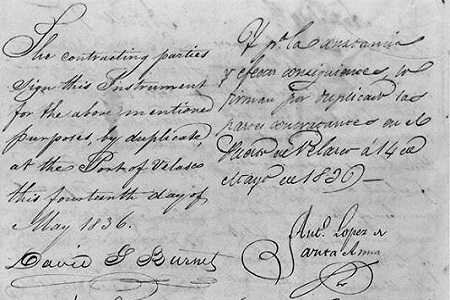 The contracting parties
sign this Instrument
for the above mentione
purposes, by duplicate,
at the Port of Velasco
this fourteenth day of
May 1836.
David G Burnet
Y pª la constancia
y efectos consiguientes, lo
firman por duplicado las
partes contratantes en el
Puerto de Velasco á 14 de
Mayo de 1836—
Antº. Lopez de
Santa Anna